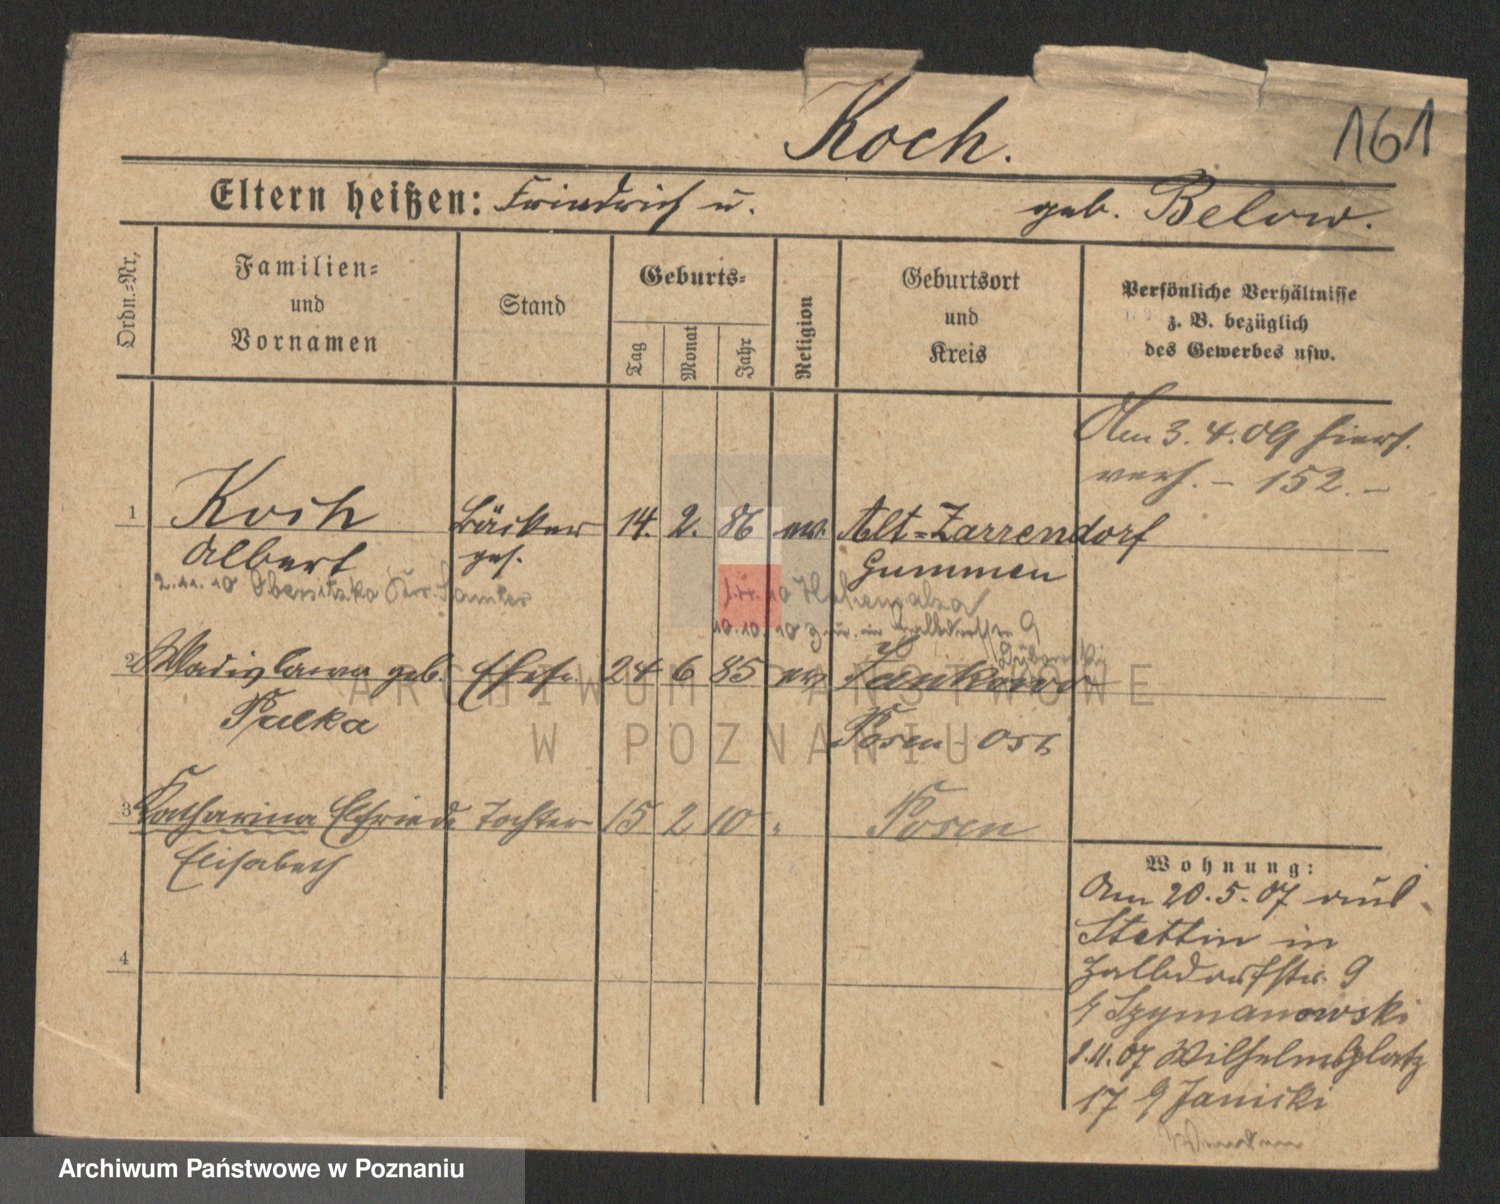 Koch.
161
Eltern heißen: Friedrich u. geb. Below.
Ordn.-Nr.
Familien-
und
Vornamen
Stand
Geburts-
Tag
Monat
Jahr
Religion
Geburtsort
und
Kreis
Persönliche Verhältnisse
z. B. bezüglich
des Gewerbes usw.
Am 3.4.09 hiers.
verh. - 152. -
1 Koch Bäcker 14. 2. 86 ev. Alt-Zarrendorf
Albert ges. Grimmen
2.11.10
10.10.10 9
2 Wladislawa geb. Ehefr. 24 6 85 ev Jankowo
Pulka Posen-Ost
3 Katharina Elfriede Tochter 15 2 10 " Posen
Elisabeth
4
Wohnung:
Am 20.5.07 aus
Stettin in
Halbdorfstr. 9
Szymanowski
1.11.07 Wilhelmsplatz
17 Janicki
Wenden
ARCHIWUM PAŃSTWOWE
W POZNANIU
Archiwum Państwowe w Poznaniu